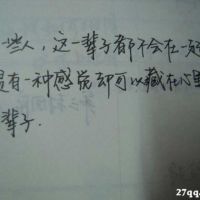 一些人，这一辈子都不会在一起
有一种感觉却可以藏在心里
辈子.
27qq.